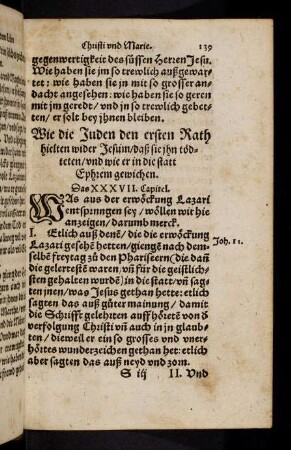 Christi vnd Marie. 139
gegenwertigkeit des süssen Herren Jesu.
Wie haben sie jm so trewlich außgewar-
tet: wie haben sie jn mit so grosser an-
dacht angesehen: wie haben sie so geren
mit jm geredt/ vnd jn so trewlich gebet-
ten/ er solt bey jhnen bleiben.
Wie die Juden den ersten Rath
hielten wider Jesum/ daß sie jhn töd-
teten/ vnd wie er in die statt
Ephrem gewichen.
Das XXXVII. Capitel.
WAs auß der erwöckung Lazari
entsprungen sey/ wöllen wir hie
anzeigen/ darumb merck.
I. Etlich auß denē/ die die erwöckung
Lazari gesehē hetten/ giengē nach dem- Joh. 11.
selbē freytag zů den Phariseern (die dañ
die gelerteste waren/ vñ für die geistlich-
sten gehalten wurdē) in die statt/ vñ sag-
ten jnen/ was Jesus gethan hette: etlich
sagten das auß gůter mainung/ damit
die Schrifft gelehrten auffhöretē von d̕
verfolgung Christi vñ auch in jn glaub-
ten/ dieweil er ein so grosses vnd vner-
hörtes wunderzeichen gethan het: etlich
aber sagten das auß neyd vnd zorn.
S iij II. Vnd